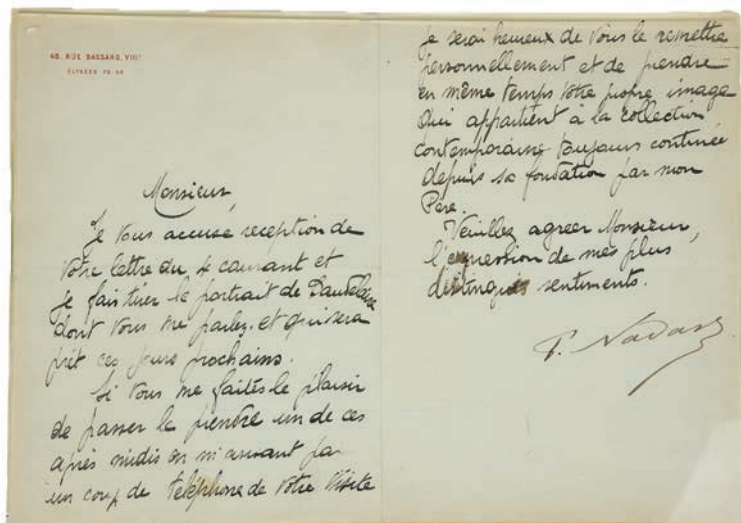 48, RUE BASSANO, VIIIᵉ
ELYSÉES
Monsieur,
Je vous accuse reception de
votre lettre du 4 courant et
je fais tirer le portrait de Baudelaire
dont vous me parlez, et qui sera
prêt ces jours prochains.
Si vous me faites le plaisir
de passer le prendre un de ces
après midis en m'avisant par
un coup de téléphone de votre visite
je serai heureux de vous le remettre
personnellement et de prendre
en même temps votre propre image
qui appartient à la collection
contemporaine toujours continuée
depuis sa fondation par mon
Père.
Veuillez agreer Monsieur,
l'expression de mes plus
distingués sentiments.
P. Nadar